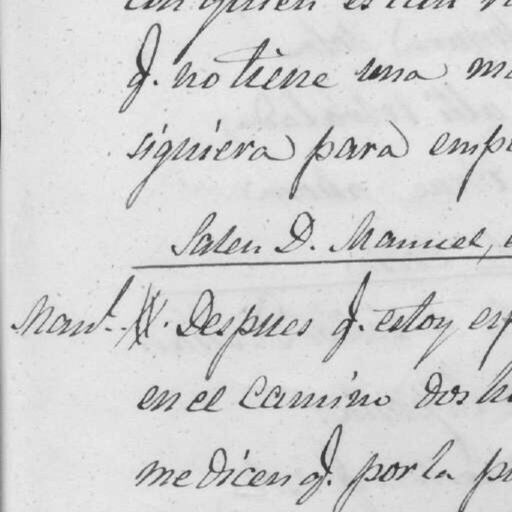 q.e no tiene una
siquiera para
Salen D. Manuel,
Man.l Despues q.e estoy
en el camino dos
me dicen q.e por la